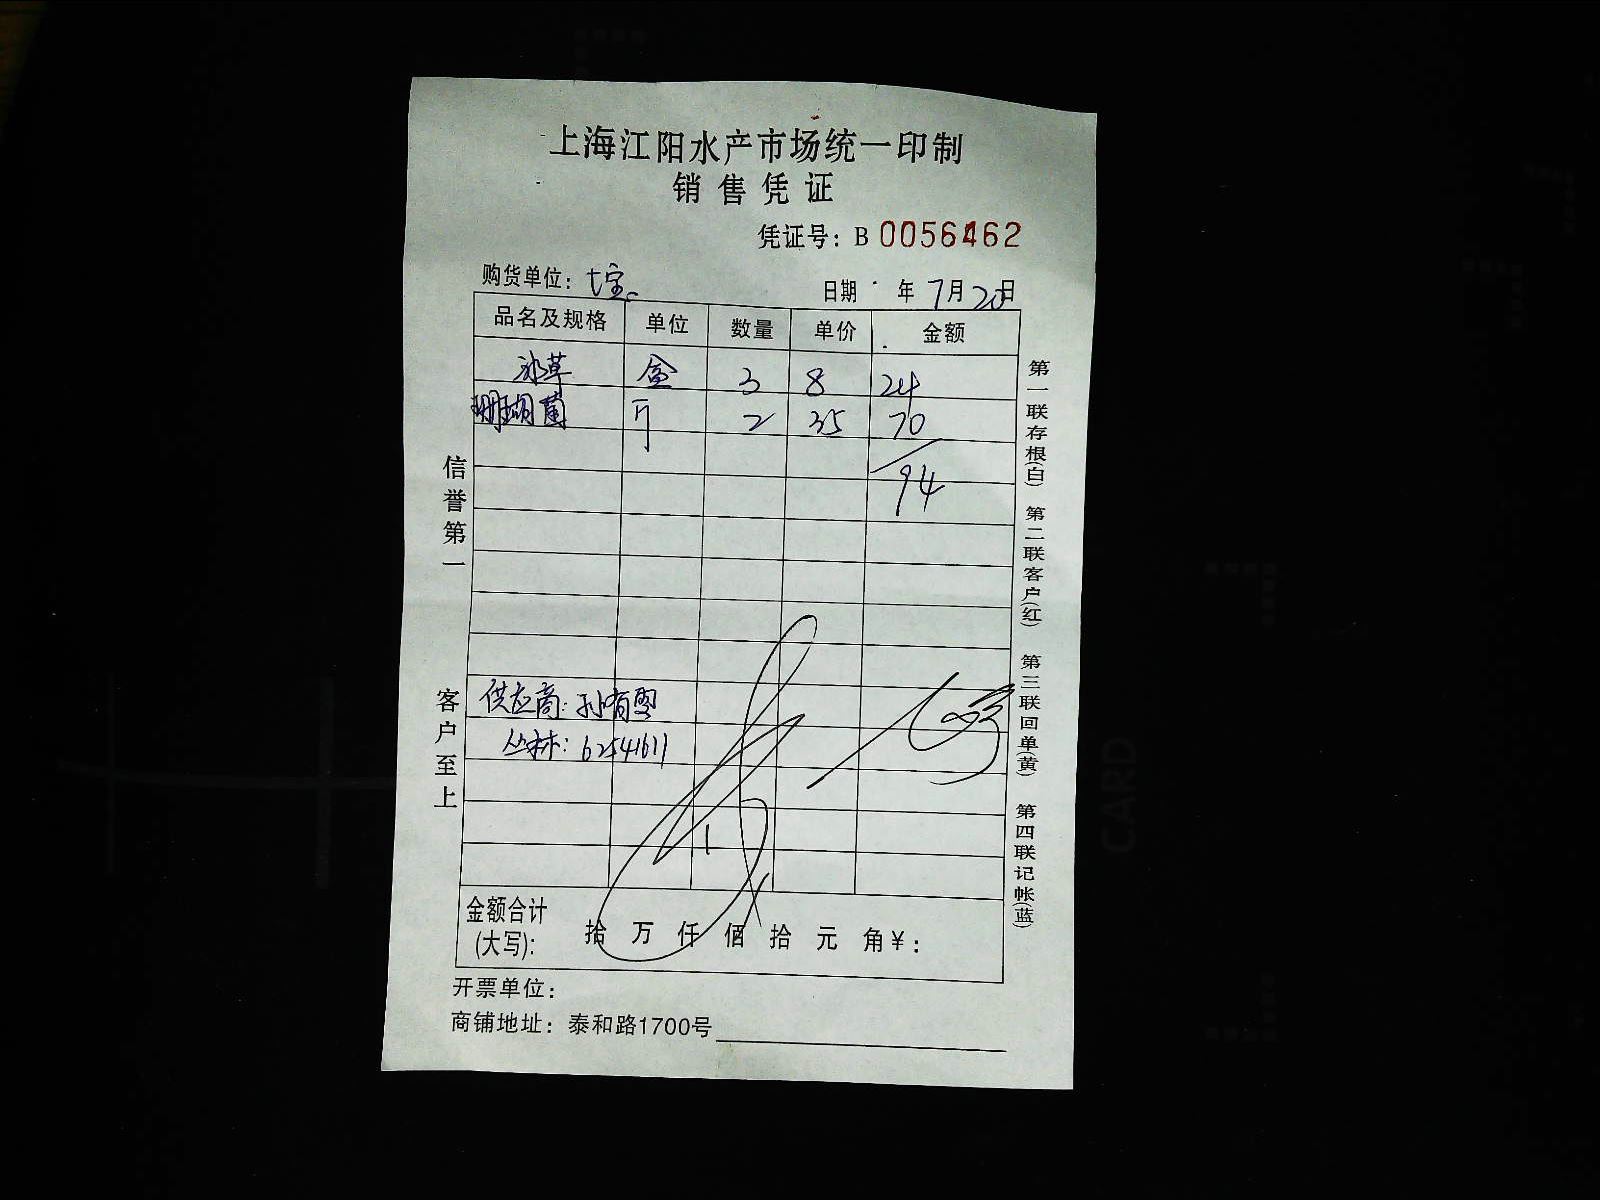 上海江阳水产市场统一印制
销售凭证
凭证号：B 0056462
购货单位：七宝
日期 年 7月20日
品名及规格 单位 数量 单价 金额
冰草 盒 3 8 24
珊瑚菌 斤 2 35 70
94
供应商：孙有雪
丛林：62541611
金额合计
(大写)： 拾 万 仟 佰 拾 元 角 ¥：
开票单位：
商铺地址：泰和路1700号
信誉第一
客户至上
第一联存根(白) 第二联客户(红) 第三联回单(黄) 第四联记帐(蓝)
CARD